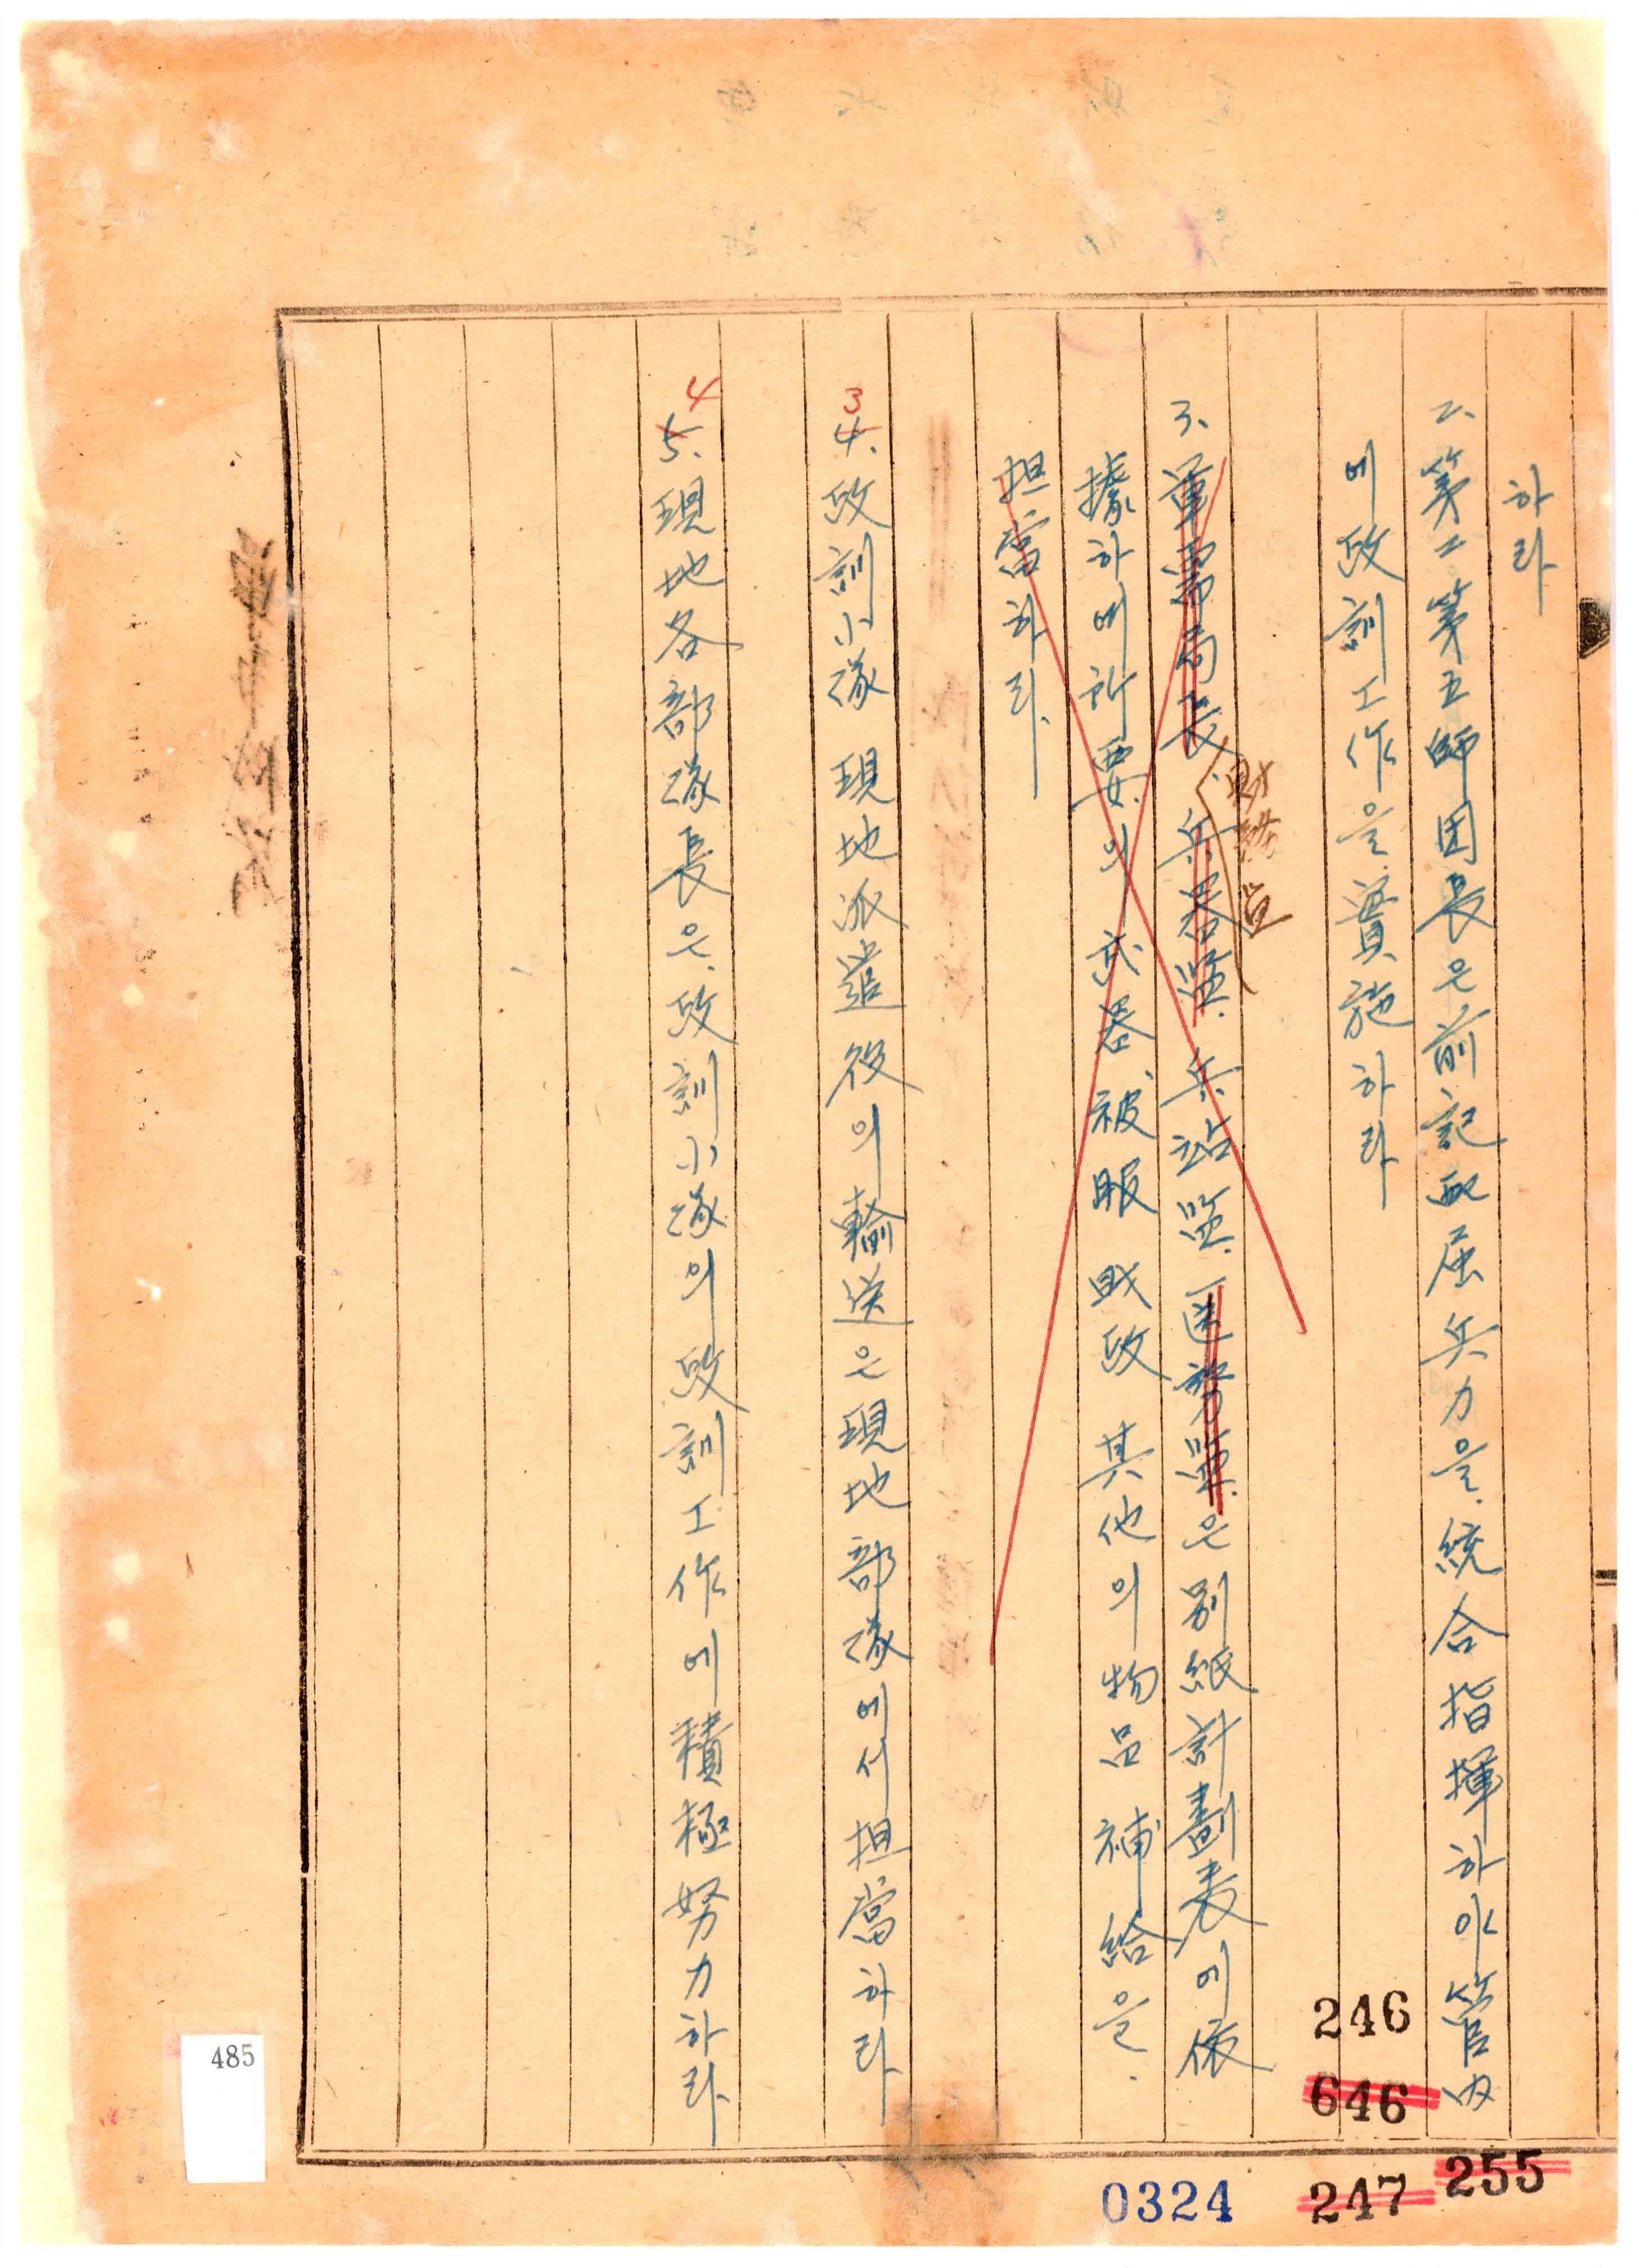 하라
二、第二第五師団長은、前記配屈兵力을、統合指揮하야管内
에政訓工作을、實施하라
3、軍需局長、兵器監、兵站監、医務監、은別紙計劃表에依
財務官
據하며所要의兵器、被服財政其他의物品補給을、
担當하라、
3
4、政訓小隊現地派遣役의輸送은現地部隊에서担當하라
4
5、現地各部隊長은、政訓小隊의政訓工作에積極努力하라、
246
646
247
255
0324
485